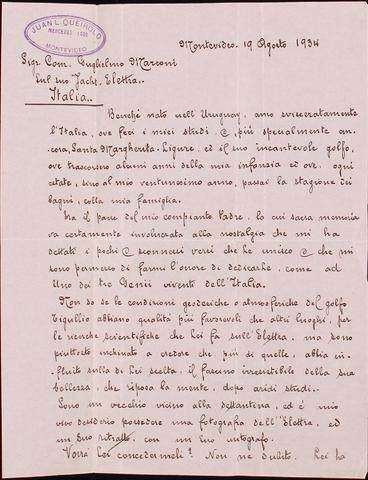 JUAN L. QUEIROLO
MERCEDES 1600
MONTEVIDEO
Montevideo. 19 Agosto 1934
Sigr. Com. Guglielmo Marconi
Sul suo Jacht. Elettra..
Italia..
Benché nato nell'Uruguay, amo svisceratamente
l'Italia, ove feci i miei studi. E più specialmente an-
cora, Santa Margherita-Ligure, ed il suo incantevole golfo,
ove trascorsero alcuni anni della mia infanzia ed ove, ogni
estate, sino al mio ventunesimo anno, passai la stagione dei
bagni, colla mia famiglia.
Era il paese del mio compianto Padre. La cui sacra memoria
va certamente involucrata alla nostalgia che mi ha
dettati i pochi e sconnessi versi che le unisco e che mi
sono permesso di farmi l'onore di dedicarle, come ad
Uno dei tre Genii viventi dell'Italia.
Non so se le condizioni geoderiche o atmosferiche del golfo
Tigullio abbiano qualità più favorevoli che altri luoghi, per
le ricerche scientifiche che Lei fa sull'Elettra, ma sono
piuttosto inchinato a credere che più di quelle, abbia in-
fluito sulla di Lei scelta, il fascino irresistibile della sua
bellezza, che riposa la mente, dopo aridi studi..
Sono un vecchio vicino alla settantina, ed è mio
vivo desiderio possedere una fotografia dell'Elettra, ed
un Suo ritratto, con un Suo autografo.
Vorrà Lei concedermeli? Non ne dubito. Lei ha